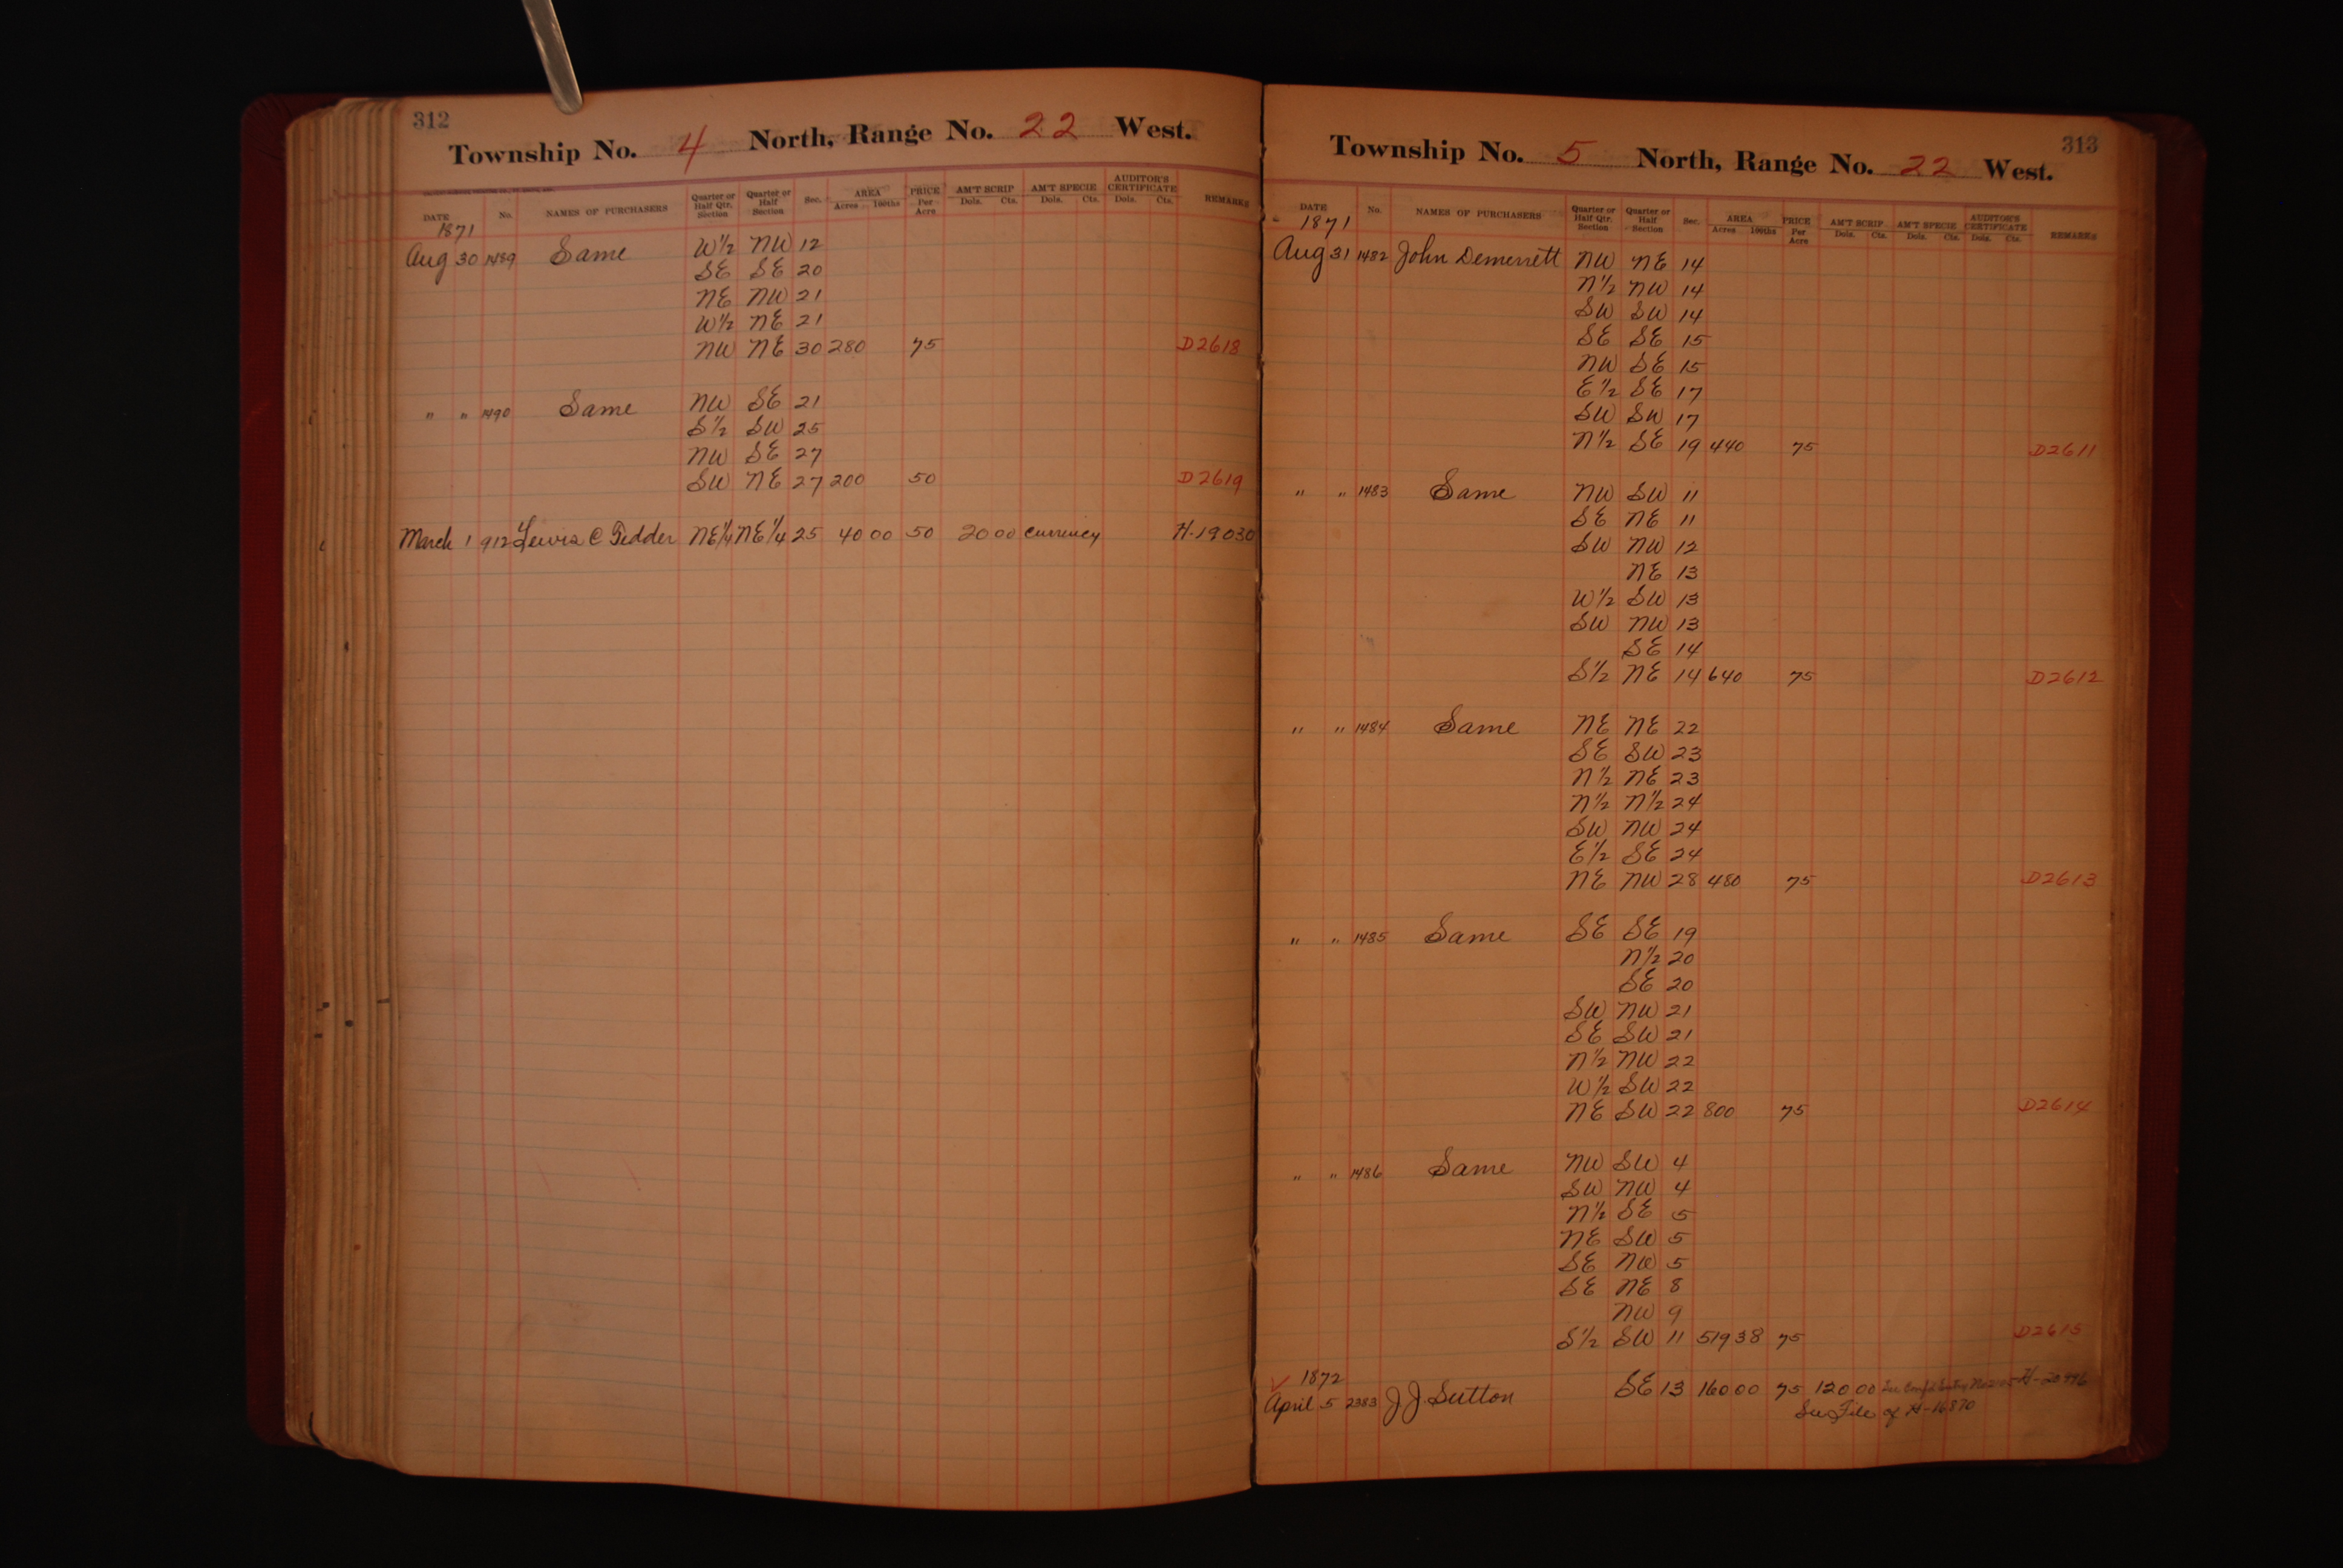 312
Township No. 4 North, Range No. 22 West.
DATE No. NAMES OF PURCHASERS Quarter or Half Qtr. Section Quarter or Half Section Sec. AREA Acres 100ths PRICE Per Acre AM'T SCRIP Dols. Cts. AM'T SPECIE Dols. Cts. AUDITOR'S CERTIFICATE Dols. Cts. REMARKS
1871
Aug 30 1489 Same W½ NW 12
SE SE 20
NE NW 21
W½ NE 21
NW NE 30 280 75 D2618
" " 1490 Same NW SE 21
S½ SW 25
NW SE 27
SW NE 27 200 50 D2619
March 1 912 Lewis C Tedder NE¼ NE¼ 25 40 00 50 20 00 currency H-19030
313
Township No. 5 North, Range No. 22 West.
DATE No. NAMES OF PURCHASERS Quarter or Half Qtr. Section Quarter or Half Section Sec. AREA Acres 100ths PRICE Per Acre AM'T SCRIP Dols. Cts. AM'T SPECIE Dols. Cts. AUDITOR'S CERTIFICATE Dols. Cts. REMARKS
1871
Aug 31 1482 John Demerrett NW NE 14
N½ NW 14
SW SW 14
SE SE 15
NW SE 15
E½ SE 17
SW SW 17
N½ SE 19 440 75 D2611
" " 1483 Same NW SW 11
SE NE 11
SW NW 12
NE 13
W½ SW 13
SW NW 13
SE 14
S½ NE 14 640 75 D2612
" " 1484 Same NE NE 22
SE SW 23
N½ NE 23
N½ N½ 24
SW NW 24
E½ SE 24
NE NW 28 480 75 D2613
" " 1485 Same SE SE 19
N½ 20
SE 20
SW NW 21
SE SW 21
N½ NW 22
W½ SW 22
NE SW 22 800 75 D2614
" " 1486 Same NW SW 4
SW NW 4
N½ SE 5
NE SW 5
SE NW 5
SE NE 8
NW 9
S½ SW 11 519 38 75 D2615
1872
April 5 2383 J J Sutton SE 13 160 00 75 120 00 See H-20996
See File of H-16870